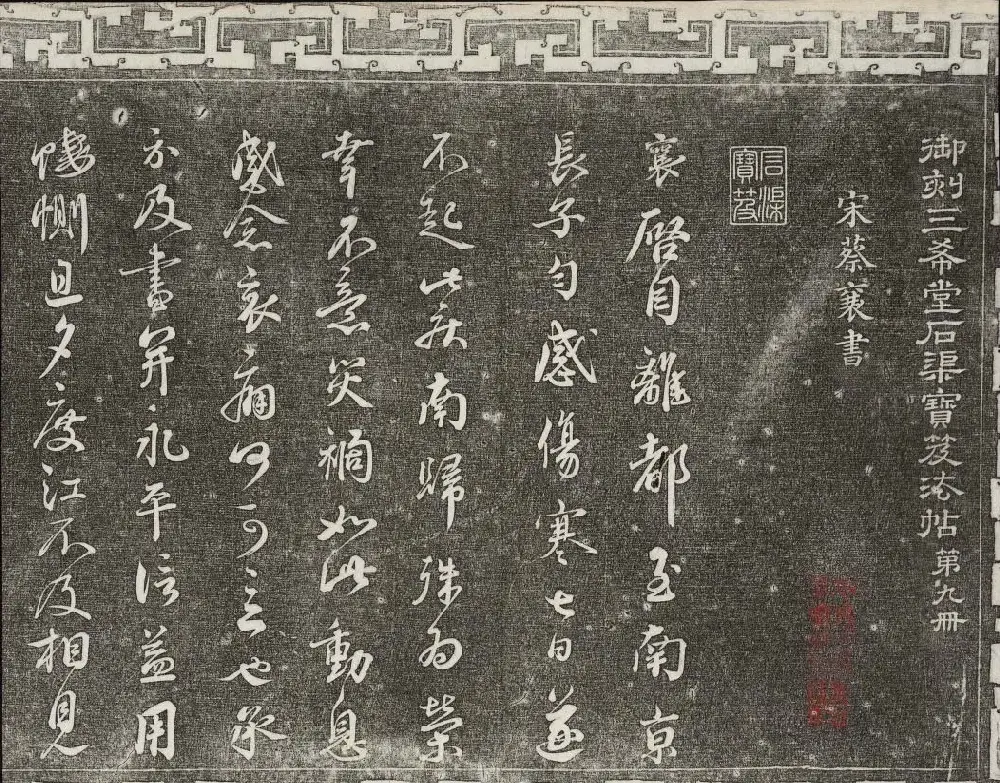 御刻三希堂石渠寶笈法帖第九冊
宋蔡襄書
石渠寶笈
襄啓自離都至南京
長子勻感傷寒七日遂
不起此疾南歸殊為榮
幸不意災禍如此動息
感念哀痛何可言也承
示及書并永平信益用
悽惻旦夕度江不及相見